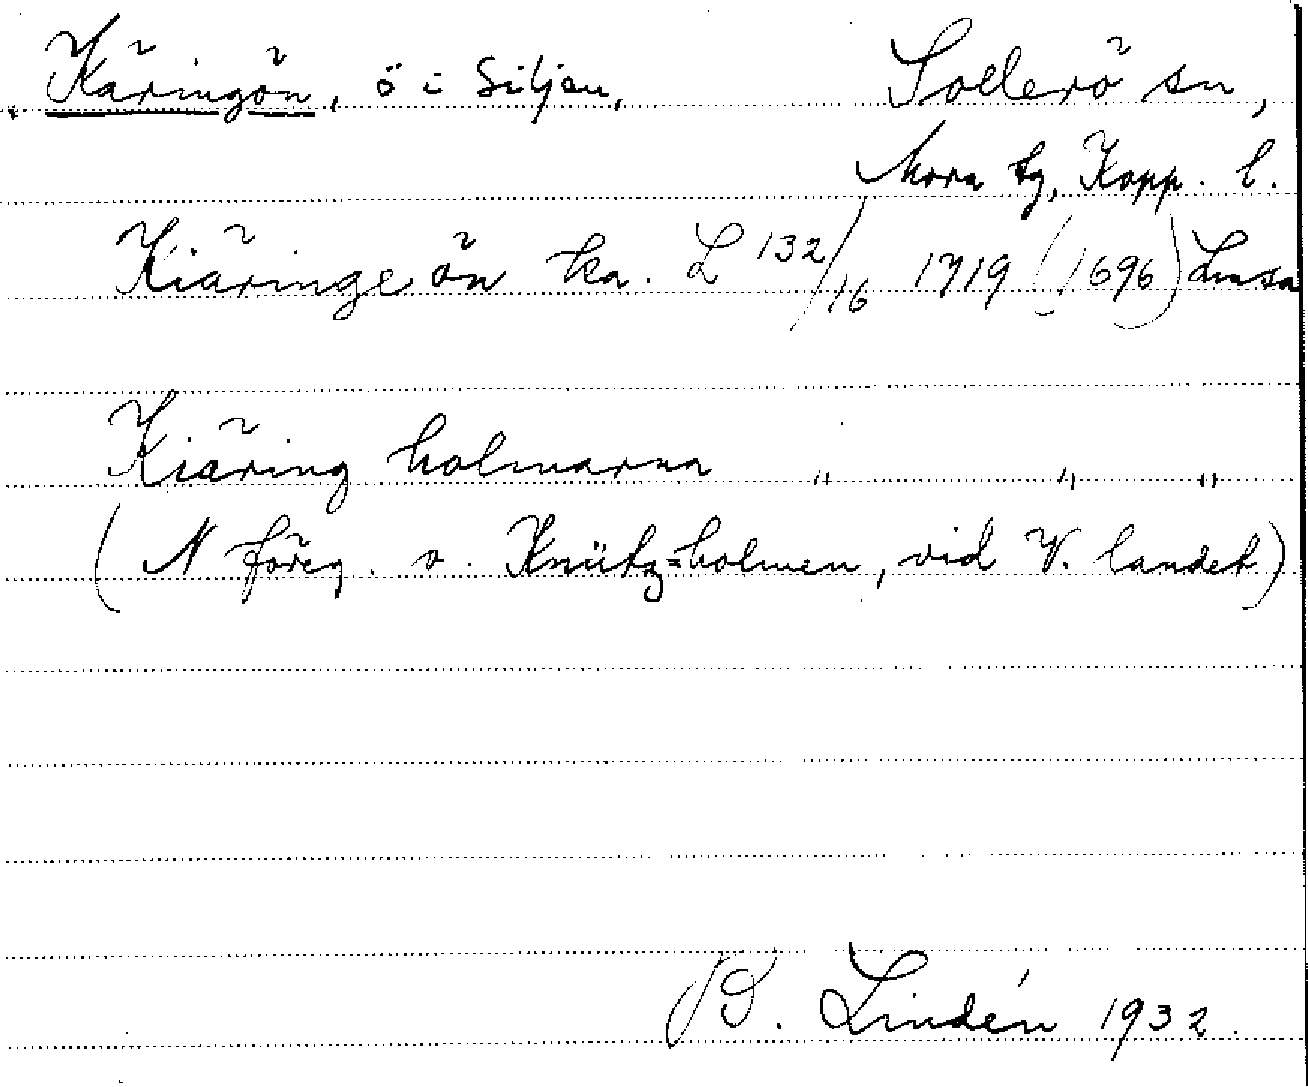 Käringön, ö i Siljan, Sollerö sn,
Mora tg, Kopp. l.
Kiäringe ön ka. L 132/16 1719 (1696) Lmsa
Kiäring holmarna " " "
(N föreg. o. Knütz=holmen, vid V. landet)
B. Lindén 1932.